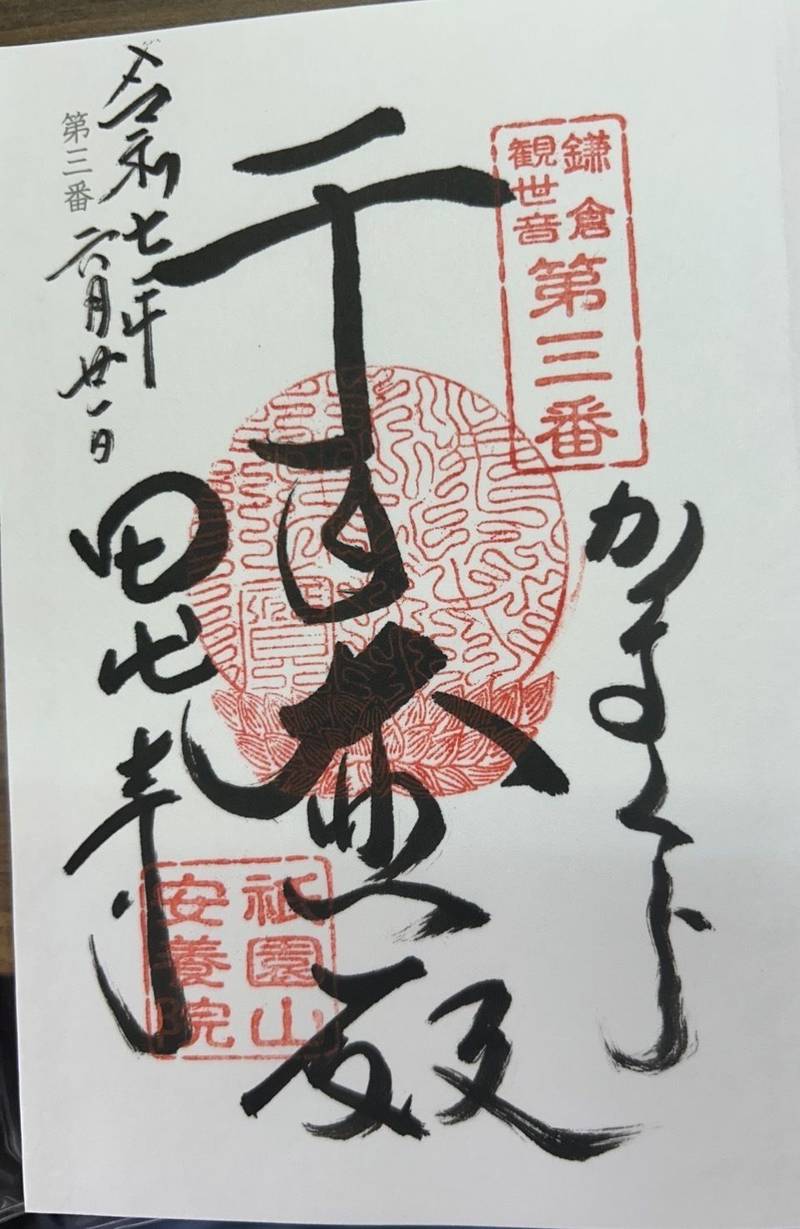 鎌倉
観世音
第三番
かまくら
大悲殿
令和七年
六月廿一日
第三番
田代寺
祇園山
安養院